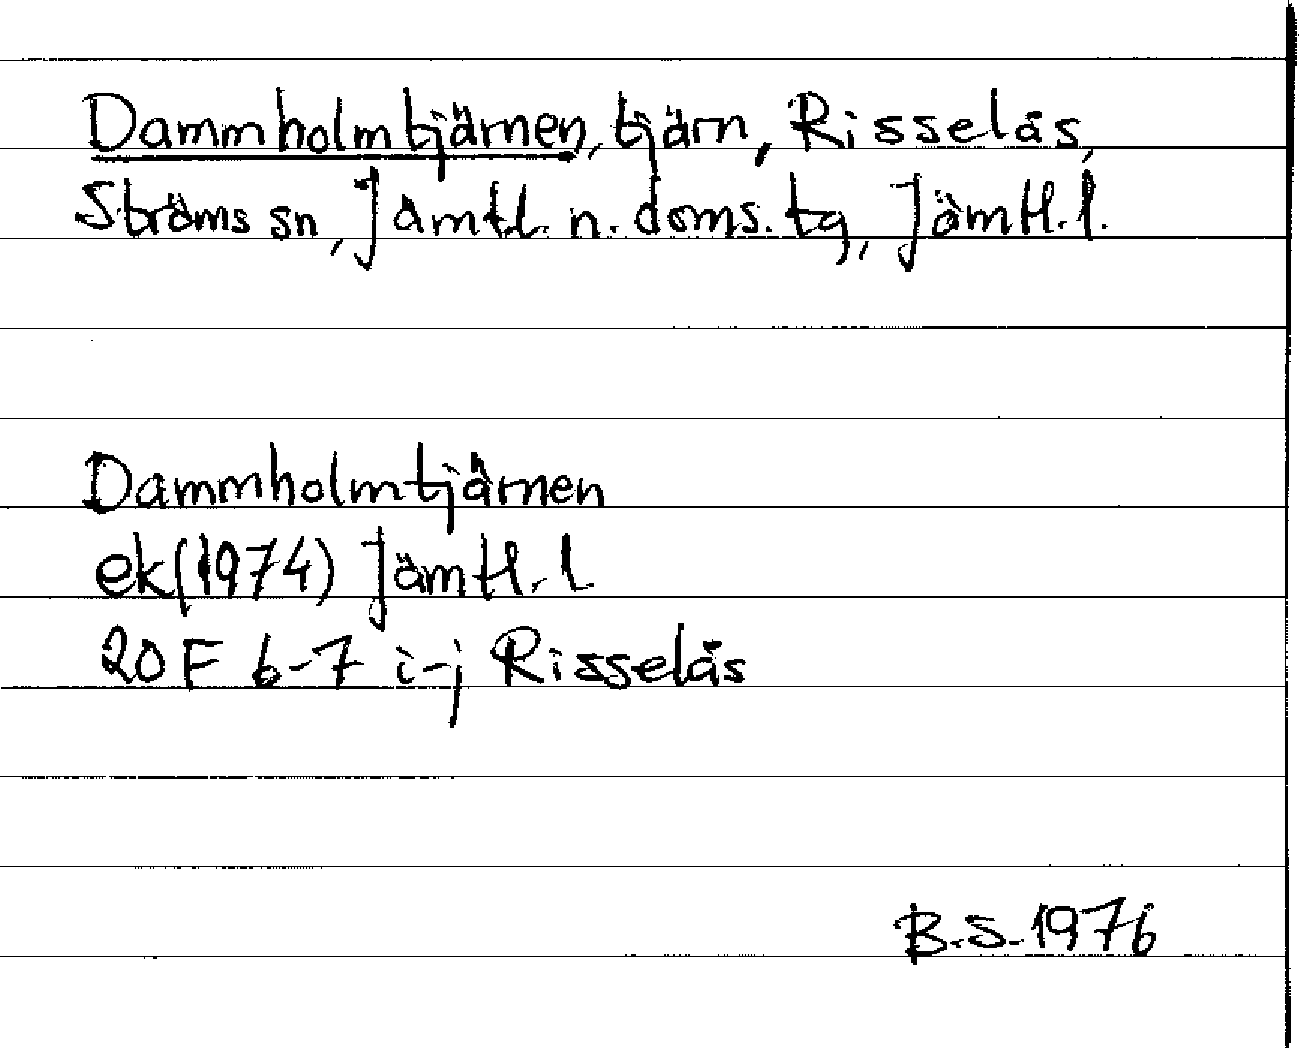 Dammholmtjärnen, tjärn, Risselås,
Ströms sn, Jämtl. n. doms. tg, Jämtl. l.
Dammholmtjärnen
ek (1974) Jämtl. l
20 F 6-7 i-j Risselås
B.S. 1976